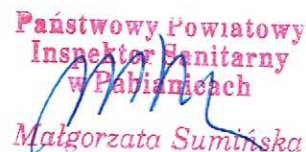 Państwowy Powiatowy
Inspektor Sanitarny
w Pabianicach
Małgorzata Sumińska